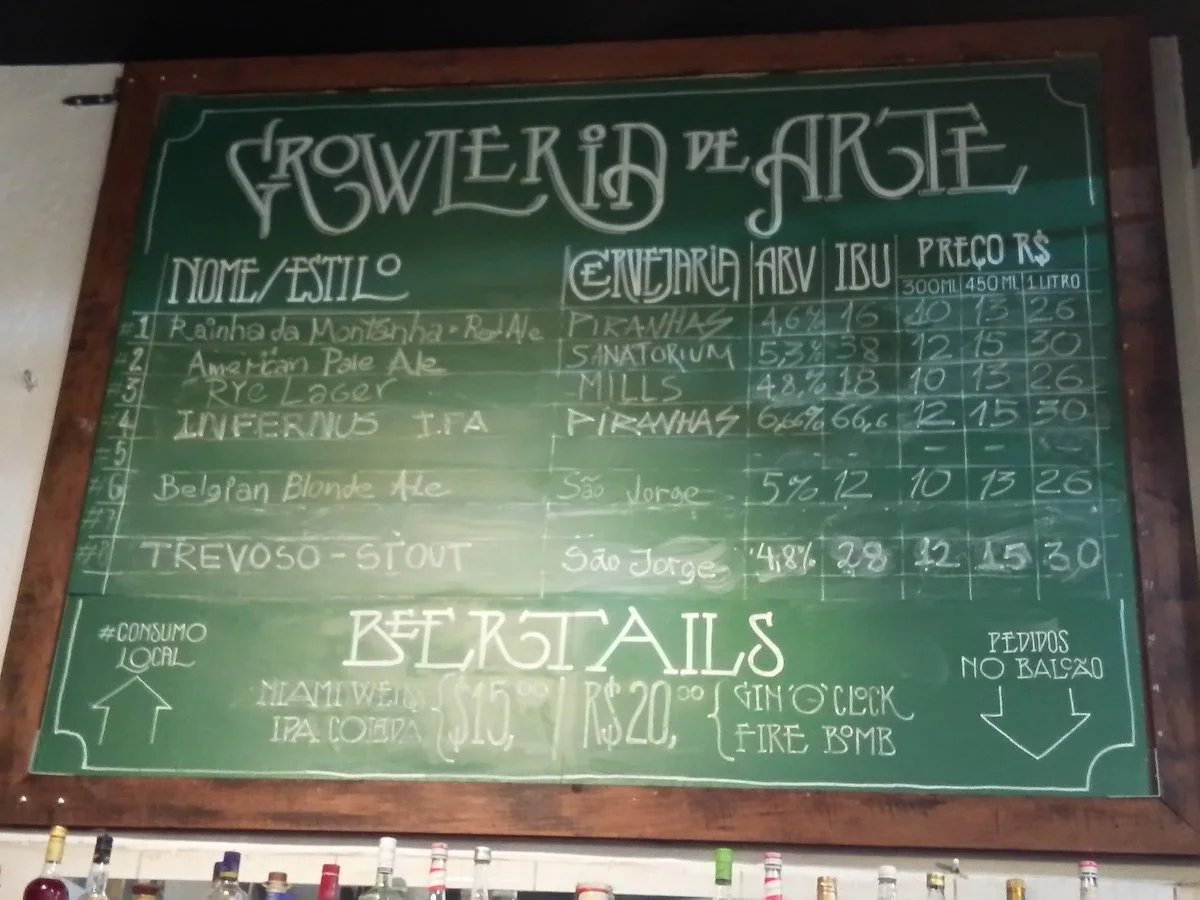 GROWLERIA DE ARTE
NOME/ESTILO CERVEJARIA ABV IBU PREÇO R$
300ML 450ML 1 LITRO
#1 Rainha da Montanha - Red Ale PIRANHAS 4,6% 16 10 13 26
#2 American Pale Ale SANATORIUM 5,3% 38 12 15 30
#3 RYE LAGER MILLS 4,8% 18 10 13 26
#4 INFERNUS I.P.A PIRANHAS 6,66% 66,6 12 15 30
#5 - - - -
#6 Belgian Blonde Ale São Jorge 5% 12 10 13 26
#7
#8 TREVOSO - STOUT São Jorge 4,8% 28 12 15 30
BEERTAILS
#CONSUMO
LOCAL
MIAMI WEISS
IPA COLADA
$15,00
R$20,00
GIN'O'CLOCK
FIRE BOMB
PEDIDOS
NO BALCÃO